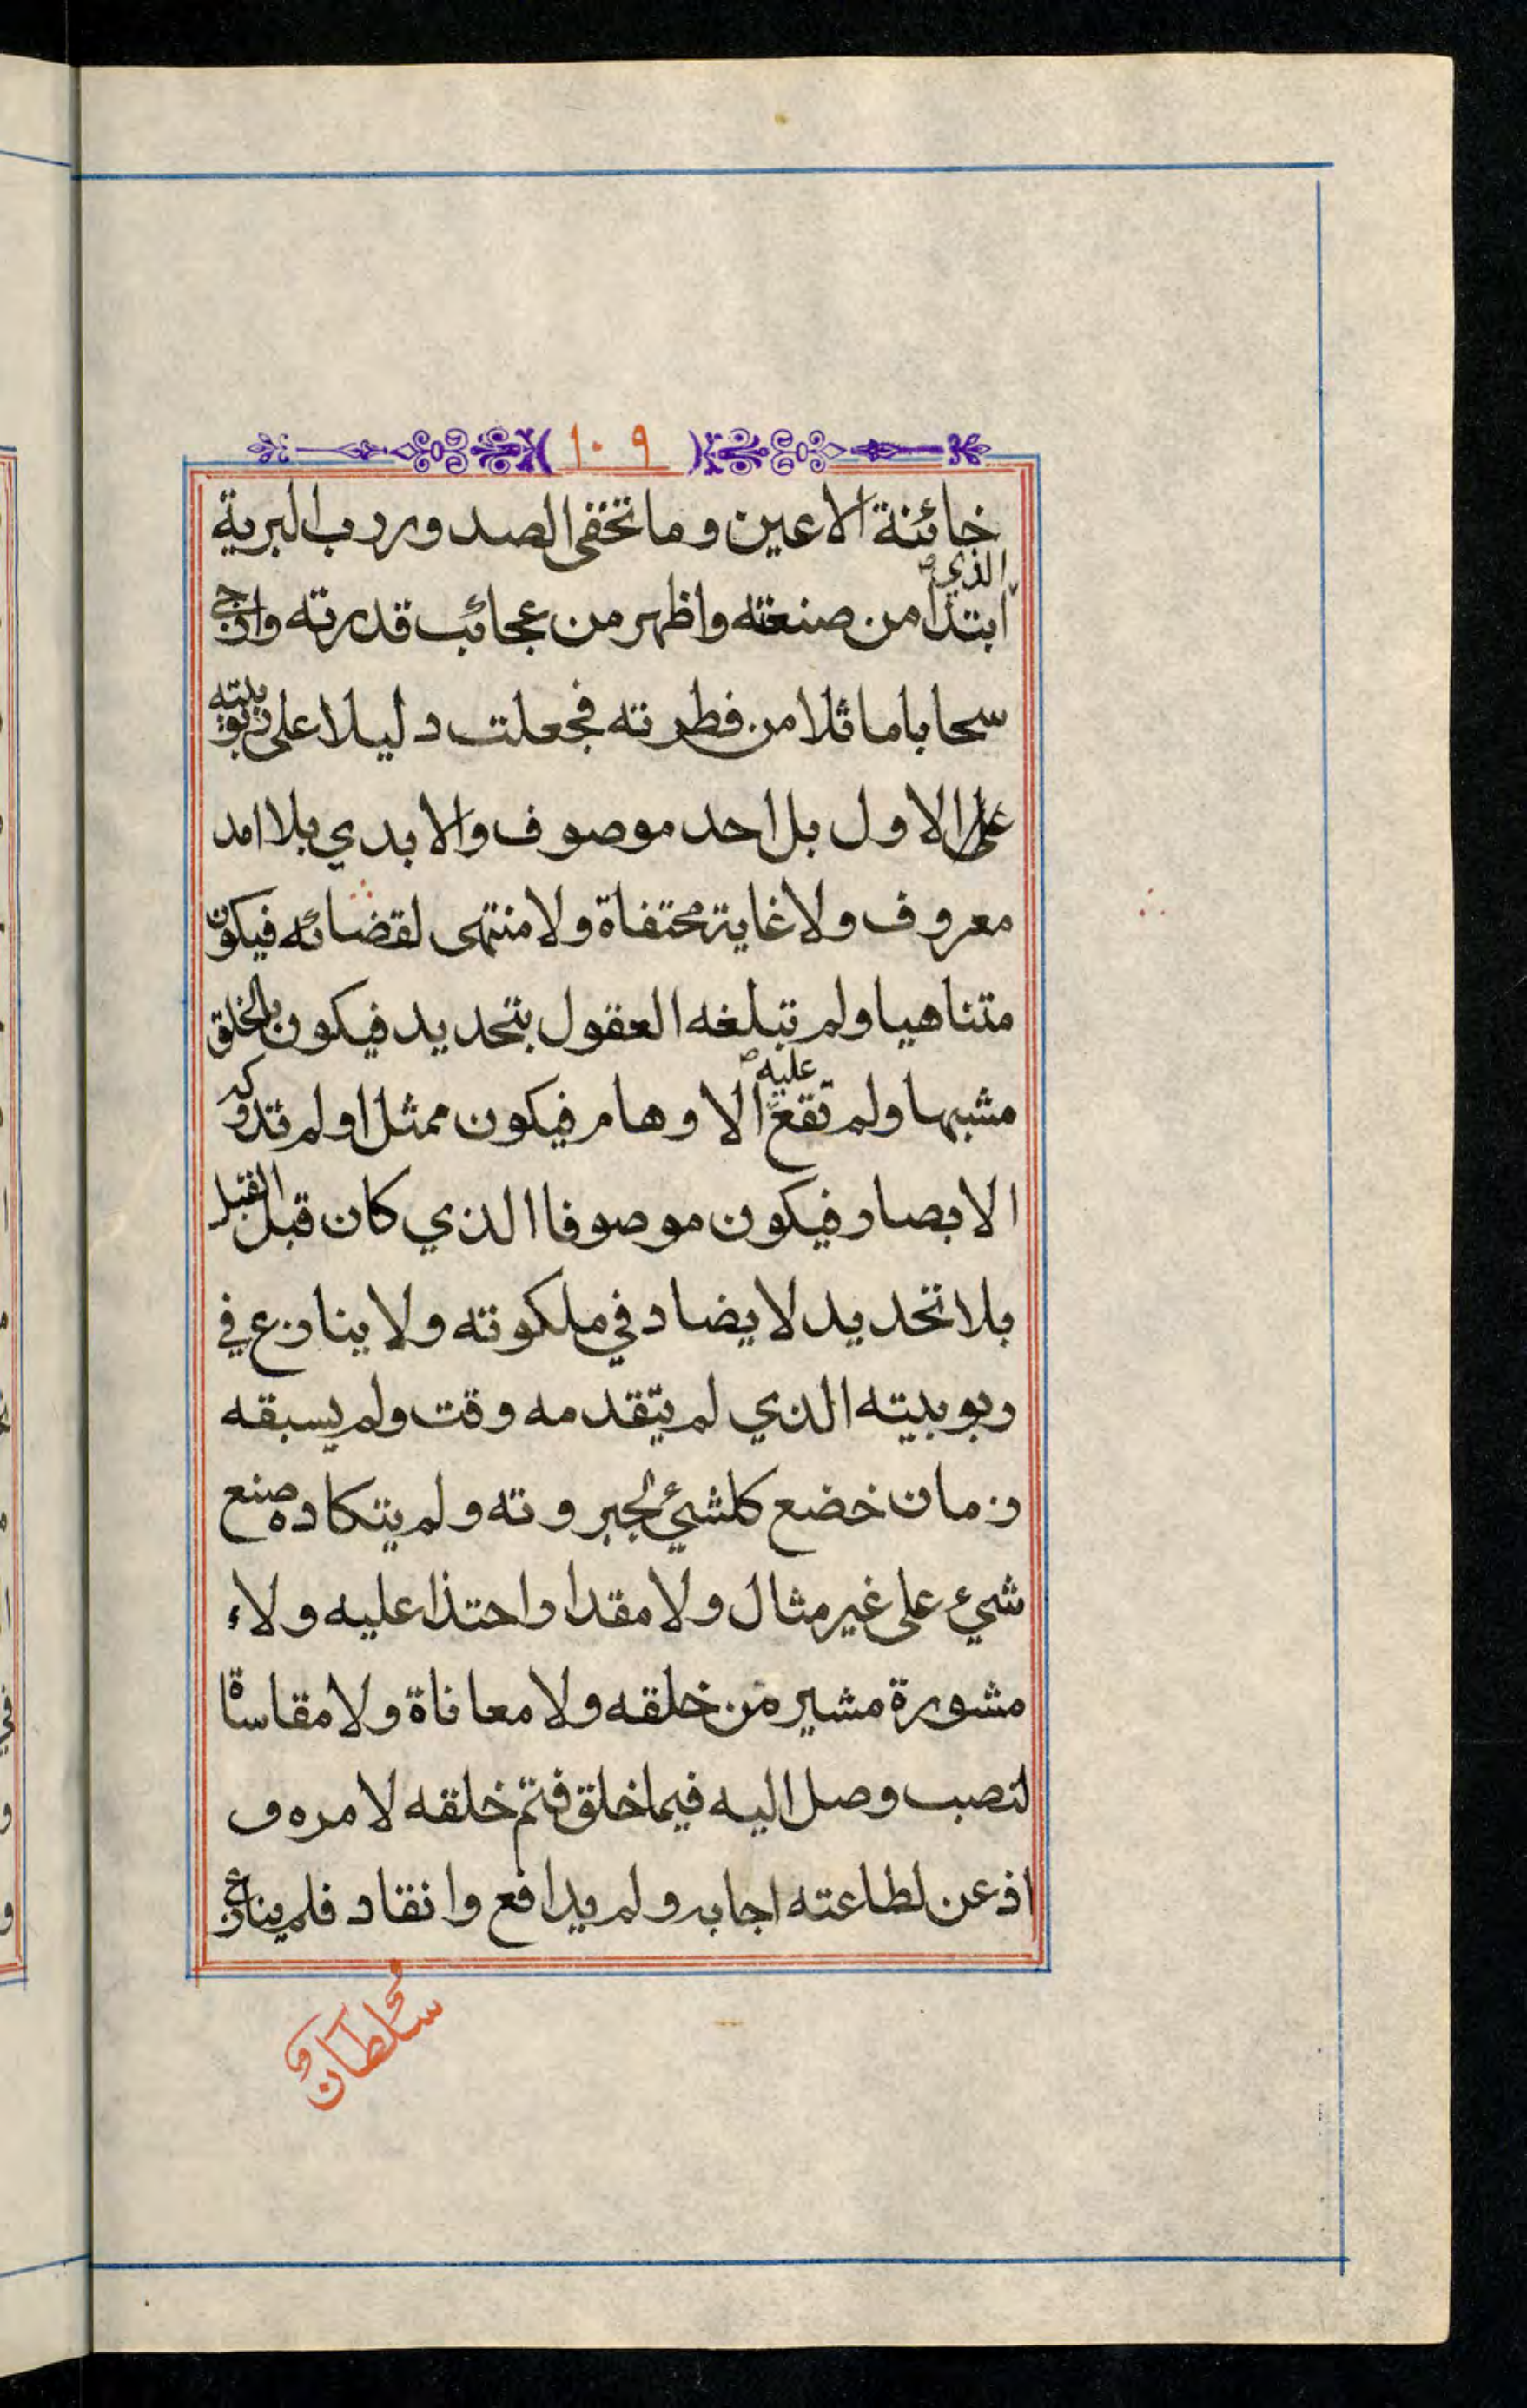 ١٠٩
خائنة الاعين وما تخفى الصدور رب البرية
الذي
ابتدا من صنعته واظهر من عجائب قدرته وازجى
سحابا ماثلا من فطرته فجعلت دليلا على ربوبيته
على الاول بل احد موصوف والابدي بلا امد
معروف ولا غاية محتفاة ولا منتهى لقضائه فيكون
متناهيا ولم تبلغه العقول بتحديد فيكون بالخلق
مشبها ولم تقع عليه الاوهام فيكون ممثلا ولم تدركه
الابصار فيكون موصوفا الذي كان قبل القبل
بلا تحديد لا يضاد في ملكوته ولا ينازع في
ربوبيته الذي لم يتقدمه وقت ولم يسبقه
زمان خضع كلشيئ لجبروته ولم يتكاده صنع
شيء على غير مثال ولا مقدار احتذا عليه ولاء
مشورة مشير من خلقه ولا معاناة ولا مقاساة
لنصب وصل اليه فيما خلق فتم خلقه لامره و
اذعن لطاعته اجابه ولم يدافع وانقاد فلم ينازع
سلطان